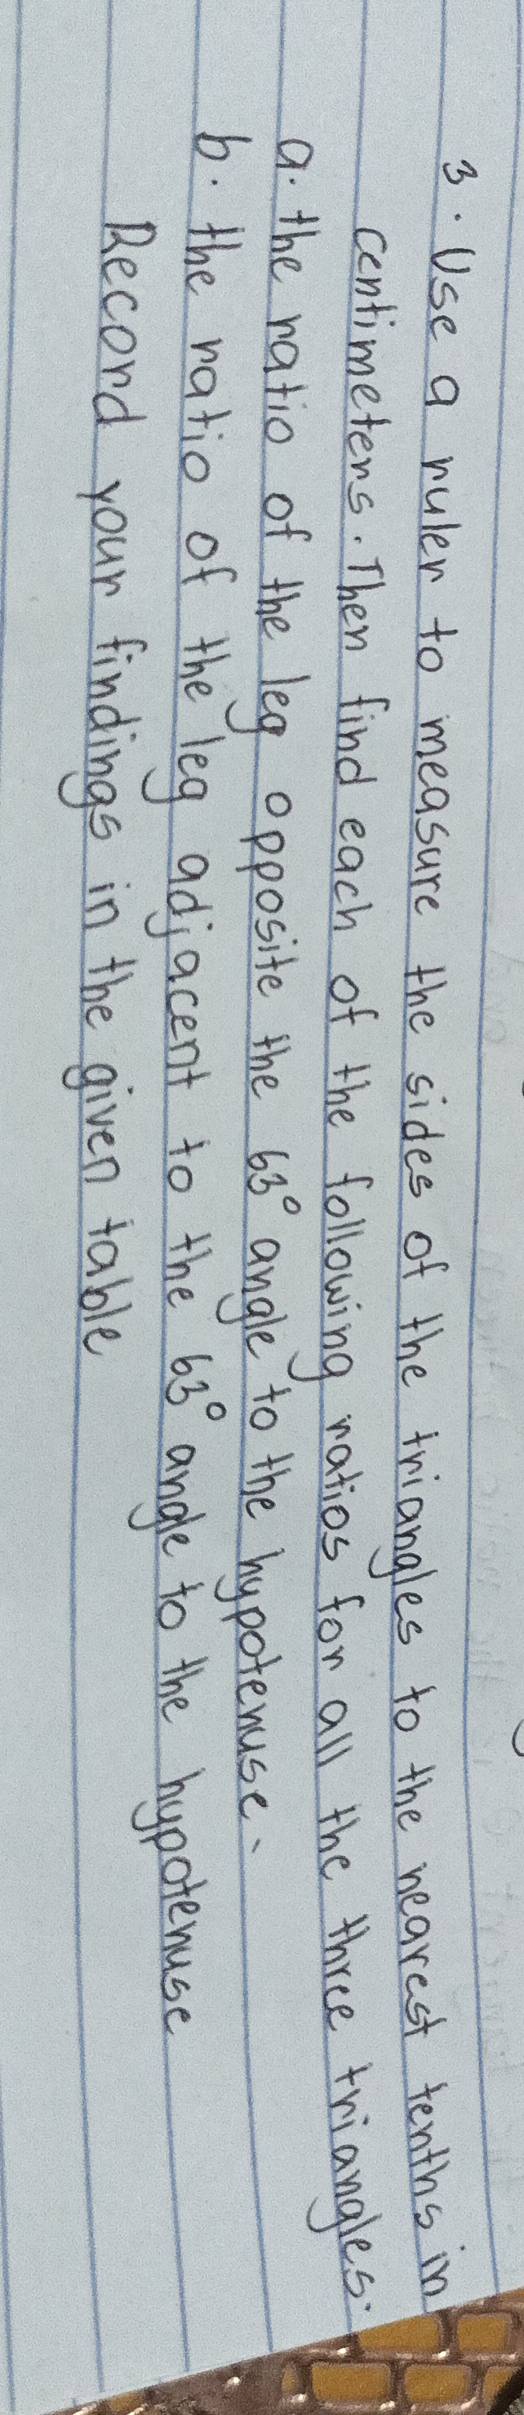 3. Use a ruler to measure the sides of the triangles to the nearest tenths in
centimeters. Then find each of the following ratios for all the three triangles.
a. the ratio of the leg opposite the 63° angle to the hypotenuse.
b. the ratio of the leg adjacent to the 63° angle to the hypotenuse
Record your findings in the given table